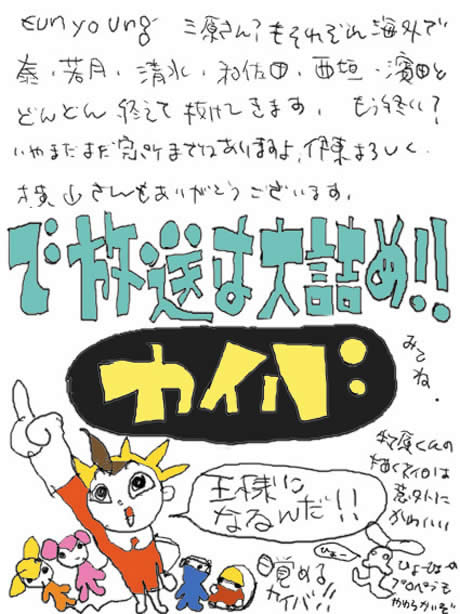 Eunyoung 三原さん?もそれぞれ海外で
秦、若月、清水、和佐田、西垣、濱田と
どんどん終えて抜けてきます。もう終い?
いやまだまだ完パケまではありますよ、伊東よろしく。
横山さんもありがとうございます。
で放送は大詰め!!
カイバ:
みてね。
王様に
なるんだ!!
目覚める
カイバ!!
くんの
描く は
意外に
かわいい
ひょー
ひょーひょーの
プロペラも